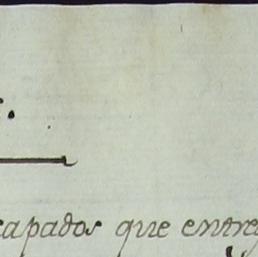 capados que entre